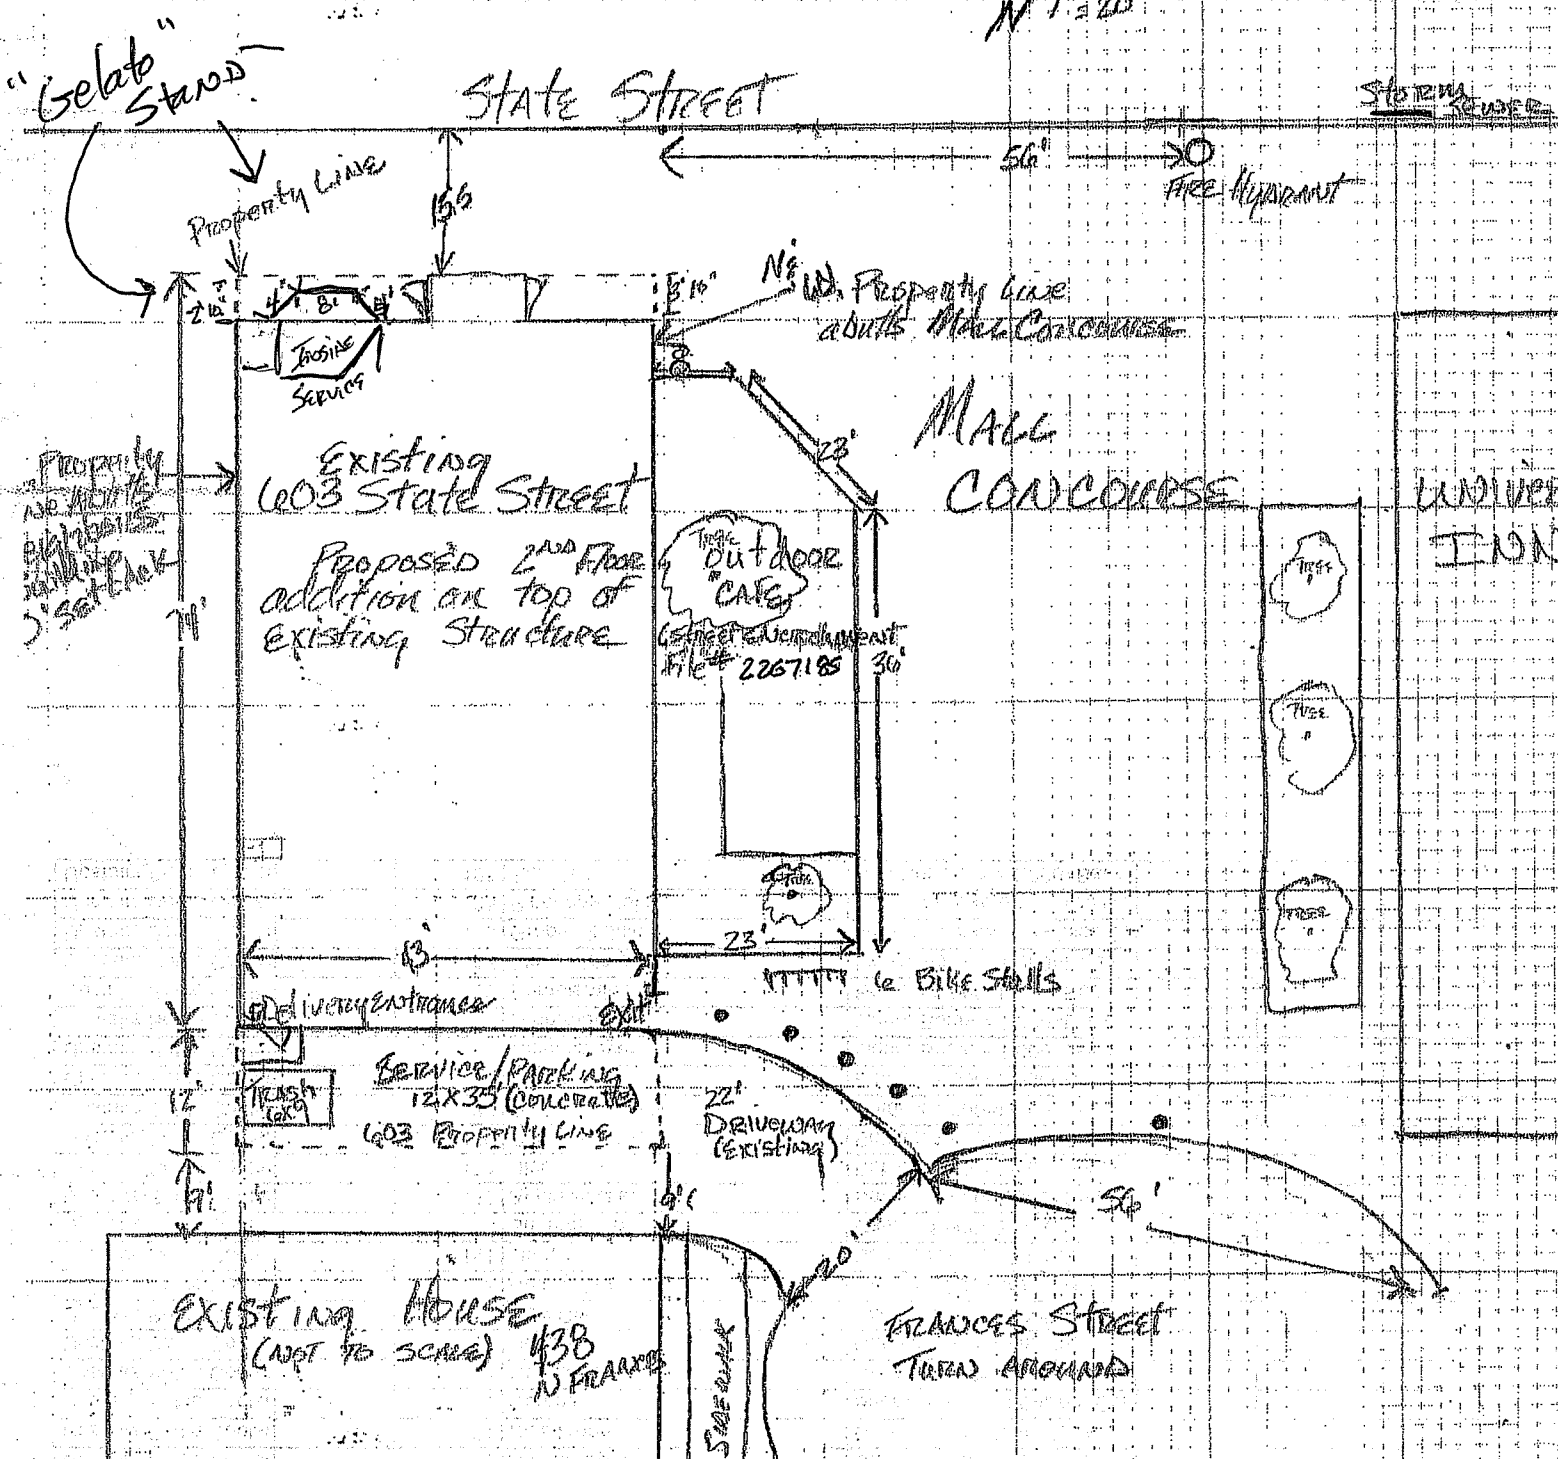 N 1"=20'
"Gelato"
Stand
STATE STREET
STORM
SEWER
56'
FIRE HYDRANT
Property Line
15.5
2'10"
4'
8'
4'
3'10"
N&
W. Property Line
abutts Mall Concourse
INSIDE
SERVICE
8'
23'
MALL
CONCOURSE
Property
Existing
603 State Street
Proposed 2ND Floor
addition on top of
existing Structure
TREE
Outdoor
CAFE
(Street Encroachment
File# 2267185
36'
UNIVER
INN
TREE
TREE
TREE
setback
74'
TREE
43'
23'
6 Bike Stalls
Delivery Entrance
Exit
TRASH
6x9
Service/Parking
12X35' (Concrete)
603 Property Line
12'
22'
DRIVEWAY
(Existing)
9'
9'
56'
20'
EXISTING HOUSE
(NOT TO SCALE)
438
N FRANCES
SIDEWALK
FRANCES STREET
TURN AROUND